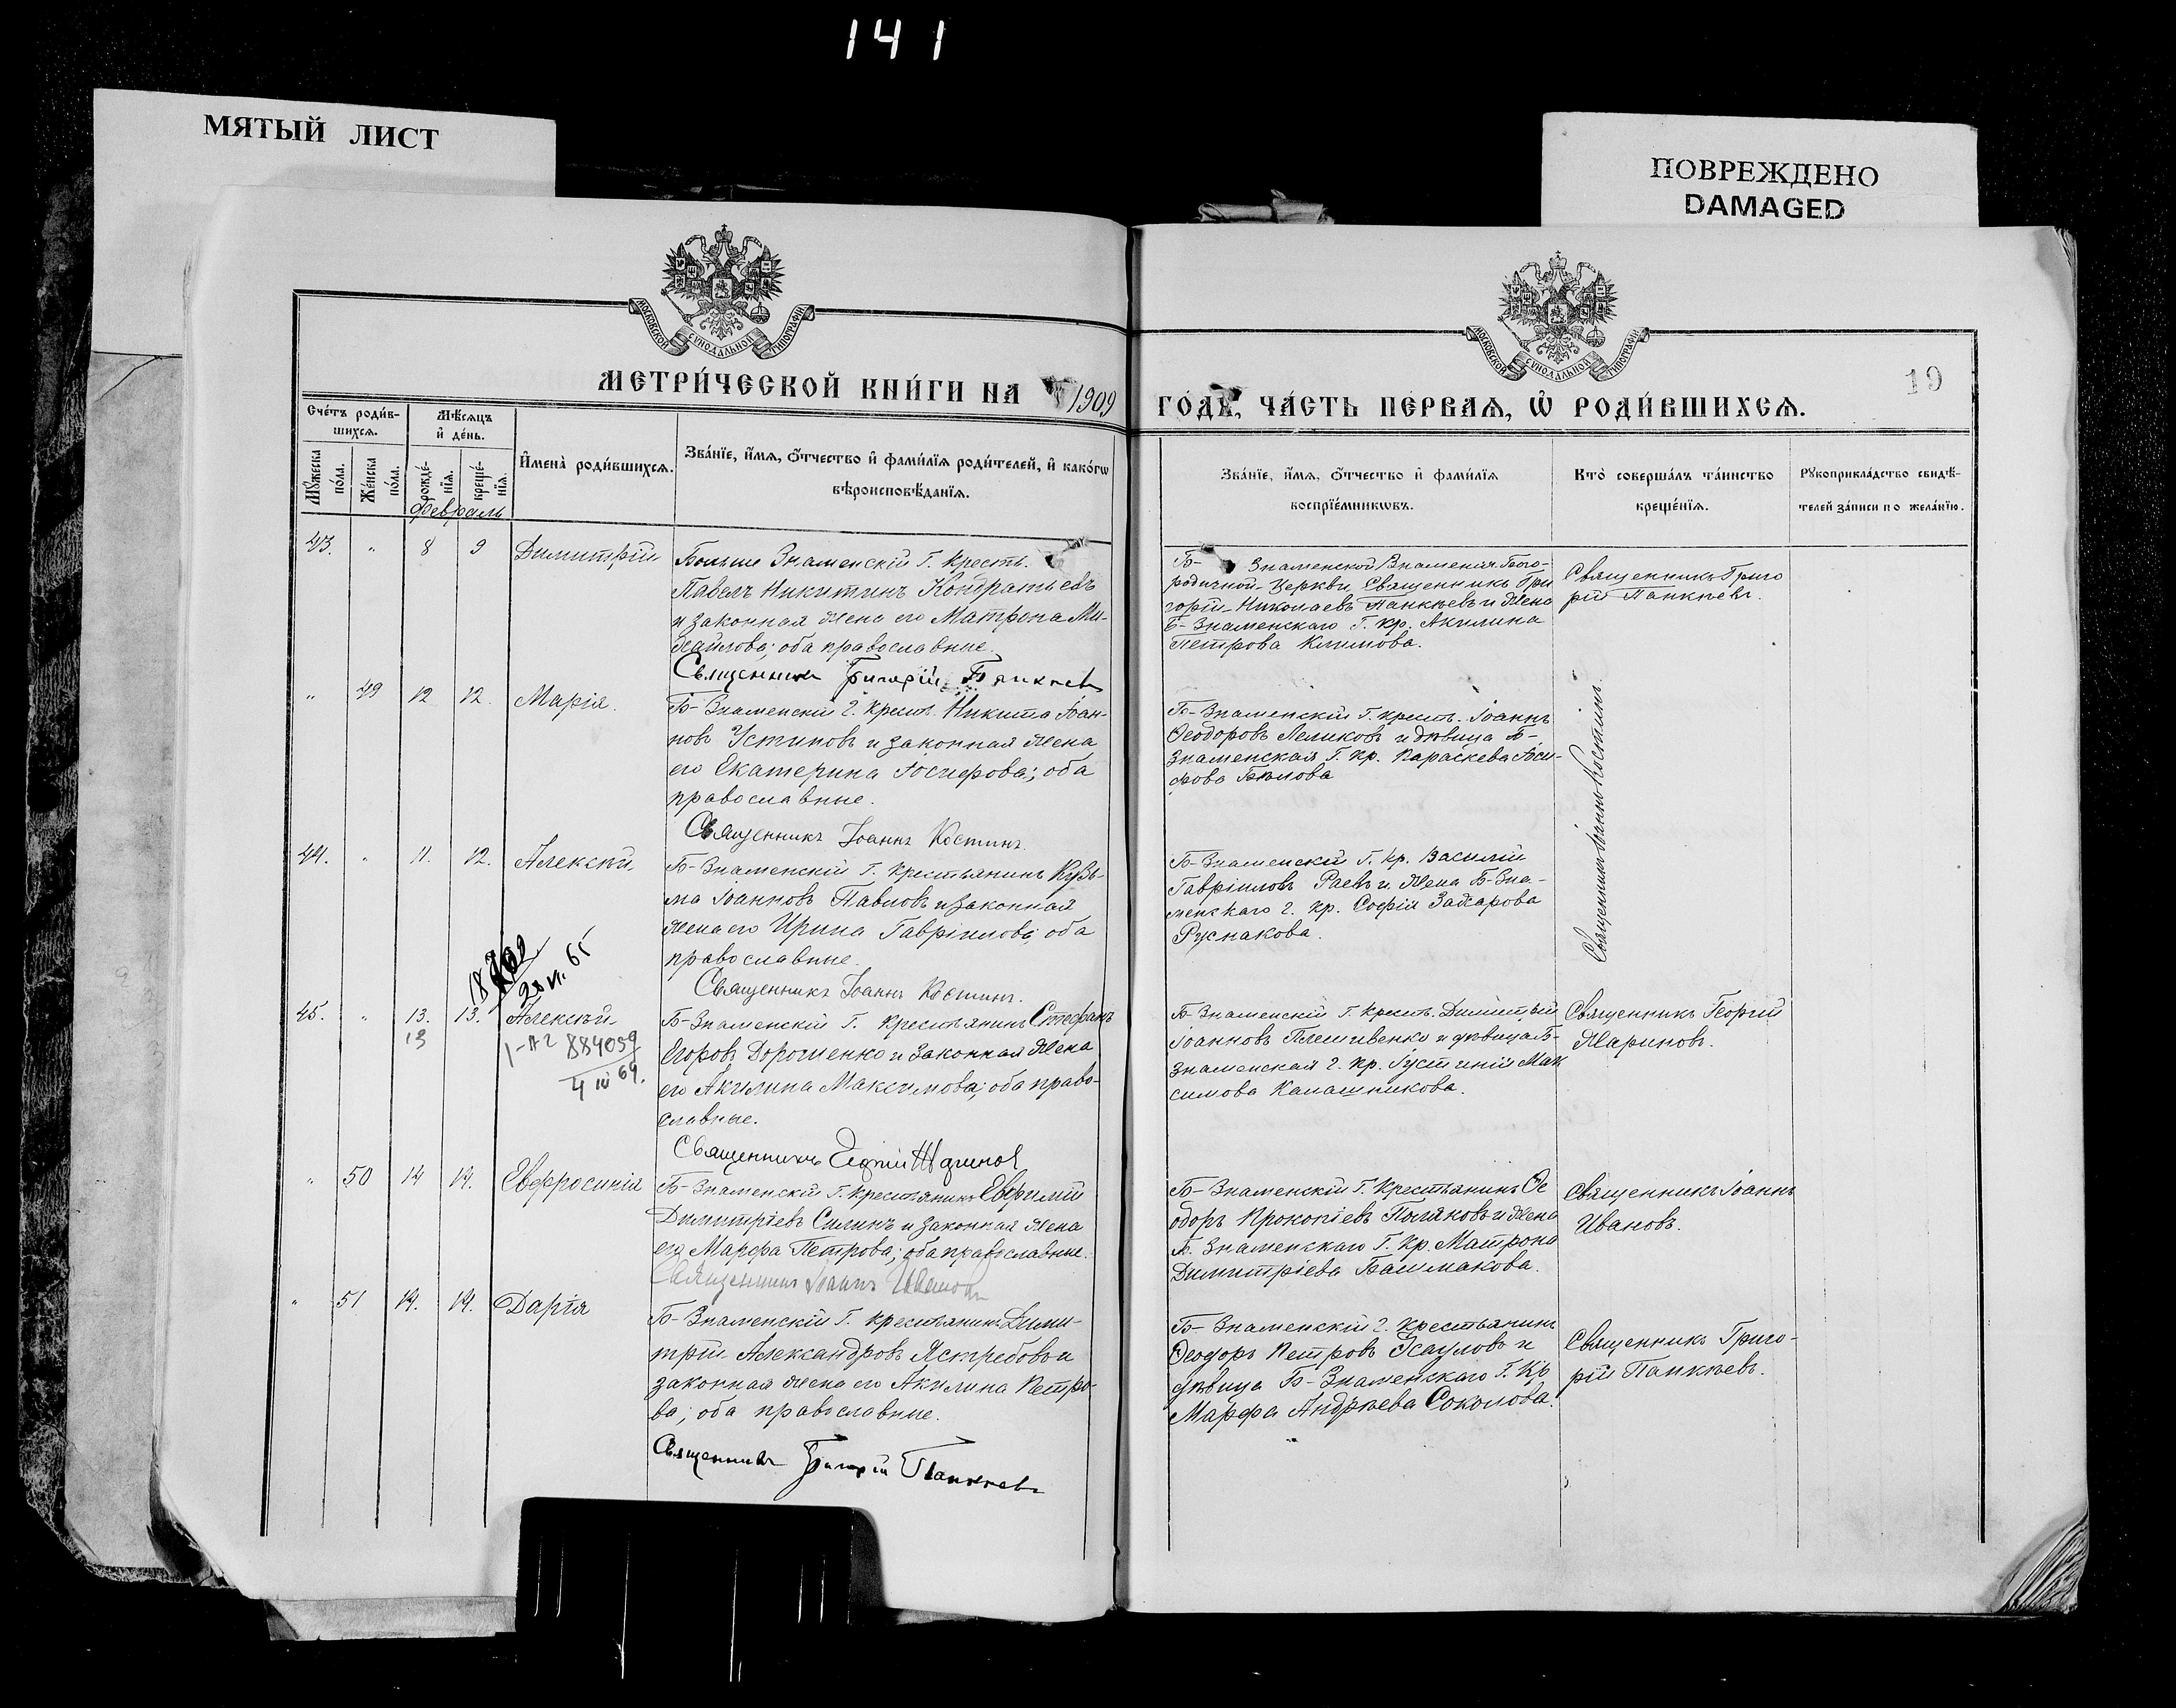 141
МЯТЫЙ ЛИСТ
ПОВРЕЖДЕНО
DAMAGED
МОСКОВСКОЙ СѴНОДАЛЬНОЙ ТИПОГРАФІИ
МОСКОВСКОЙ СѴНОДАЛЬНОЙ ТИПОГРАФІИ
19
МЕТРИ́ЧЕСКОЙ КНИ́ГИ НА 1909
ГО́ДЪ, ЧА́СТЬ ПЕ́РВАѦ, Ѽ РОДИ́ВШИХСѦ.
Сче́тъ роди́в-
шихсѧ.
Мѣ́сѧцъ
и҆ де́нь.
И҆мена̀ роди́вшихсѧ.
Зва́нїе, и҆́мѧ, ѻ҆́тчество и҆ фами́лїѧ роди́телей, и҆ како́гѡ
вѣроисповѣ́данїѧ.
Мꙋ́жеска
по́ла.
Же́нска
по́ла.
рожде́-
нїѧ.
креще́-
нїѧ.
Февраль
Зва́нїе, и҆́мѧ, ѻ҆́тчество и҆ фами́лїѧ
воспрїе́мникѡвъ.
Кто̀ соверша́лъ та́инство
креще́нїѧ.
Рꙋкоприкла́дство свидѣ́-
телей за́писи по жела́нїю.
43. " 8 9 Димитрій
Больше Знаменскій Г. крестъ.
Павелъ Никитинъ Кондратьевъ
и законная жена его Матрона Ми-
хайлова; оба православные.
Священникъ Григорій Панкѣевъ
Б- Знаменской Знамения Бого-
родичной Церкви, Священникъ Гри
горій Николаевъ Панкѣевъ и жена
Б-Знаменскаго Г. кр. Акилина
Петрова Климова.
Священникъ Григо
рій Панкѣевъ.
" 49 12 12. Марія.
Б-Знаменскій Г. крест. Никита Іоан-
новъ Устиновъ и законная жена
его Екатерина Іосифова; оба
православные.
Священникъ Іоаннъ Костинъ.
Б-Знаменскій Г. крест. Іоаннъ
Ѳеодоровъ Леликовъ и дѣвица Б-
Знаменская Г. кр. Параскева Іоси-
фова Бѣлова
Священникъ Іоаннъ Костинъ.
44. " 11. 12. Алексѣй
Б-Знаменскій Г. крестьянинъ Кузь-
ма Іоанновъ Павловъ и законная
жена его Ирина Гавріилова; оба
православные.
Священникъ Іоаннъ Костинъ.
Б-Знаменскій Г. кр. Василій
Гавріиловъ Раевъ и жена Б-Зна-
менскаго Г. кр. Софія Захарова
Руснакова.
45. " 13. 13. Алексѣй
13
884059
4 III 69.
Б-Знаменскій Г. крестьянинъ Стефанъ
Егоровъ Дорошенко и законная жена
его Акилина Максимова; оба право-
славные.
Священникъ Георгій Мариновъ
Б-Знаменскій Г. крест. Димитрій
Іоанновъ Плешивенко и дѣвица Б-
Знаменская Г. кр. Іустинія Мак
симова Калашникова.
Священникъ Георгій
Мариновъ.
" 50 14 14. Евфросинія
Б-Знаменскій Г. крестьянинъ Евфимій
Димитріевъ Силинъ и законная жена
его Марфа Петрова; оба православные.
Священникъ Іоаннъ Ивановъ
Б-Знаменскій Г. крестьянинъ Ѳе
одоръ Прокопіевъ Поляковъ и жена
Б. Знаменскаго Г. кр. Матрона
Димитріева Башмакова.
Священникъ Іоаннъ
Ивановъ.
" 51 14. 14. Дарія
Б-Знаменскій Г. крестьянинъ Дими-
трій Александровъ Ястребовъ и
законная жена его Акилина Петро
ва; оба православные.
Священникъ Григорій Панкѣевъ
Б-Знаменскій Г. крестьянинъ
Ѳеодоръ Петровъ Есауловъ и
дѣвица Б-Знаменскаго Г. кр
Марфа Андреева Соколова.
Священникъ Григо-
рій Панкѣевъ.